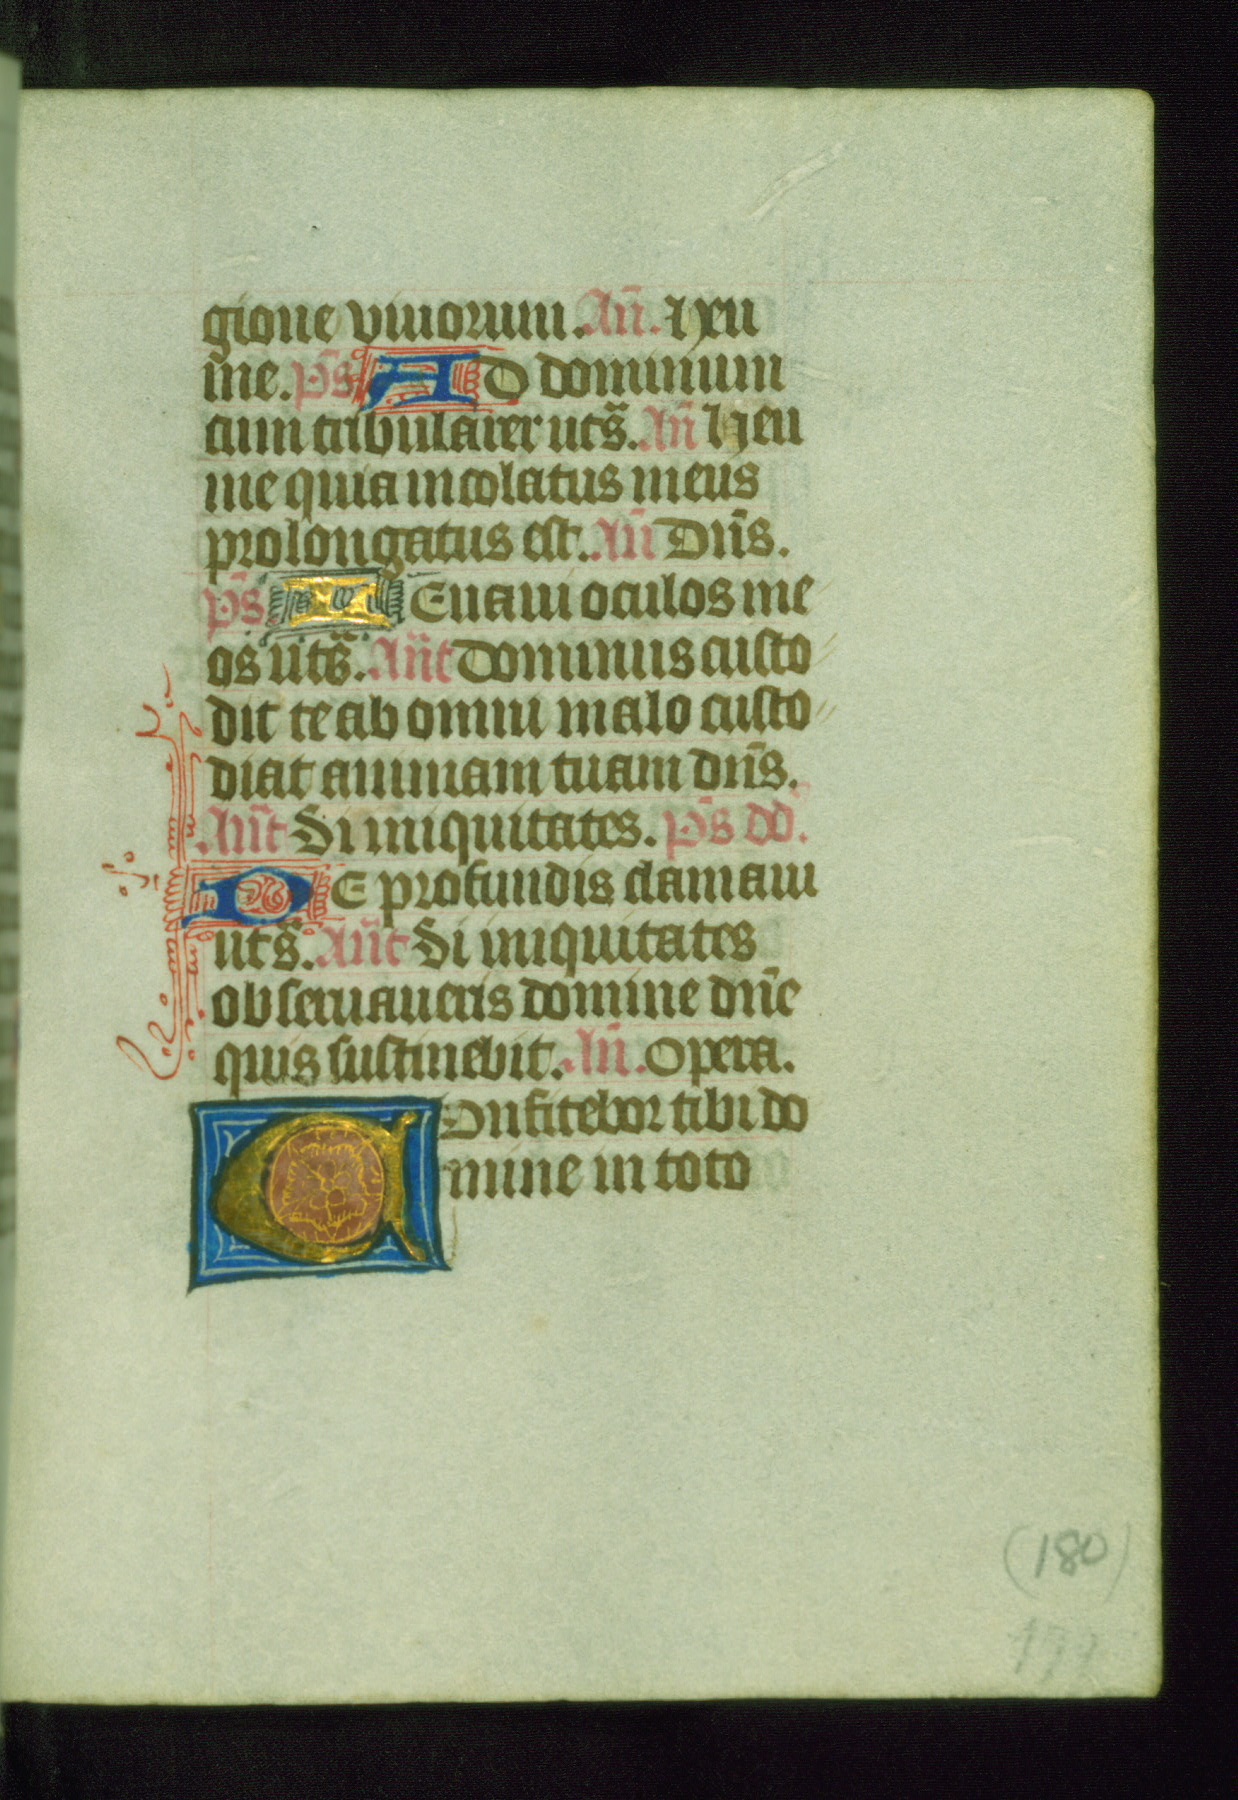 gione viuorum. An̄. Heu
me. ps̄ AD dominum
cum tribularer ut s̄. An̄ Heu
me quia incolatus meus
prolongatus est. An̄ Dn̄s.
ps̄. LEuaui oculos me
os ut s̄. An̄t Dominus custo
dit te ab omni malo custo
diat animam tuam dn̄s.
An̄t Si iniquitates. ps̄ dd̄.
DE profundis clamaui
ut s̄. An̄t Si iniquitates
obseruaueris domine dn̄e
quis sustinebit. An̄. Opera.
COnfitebor tibi do
mine in toto
(180)